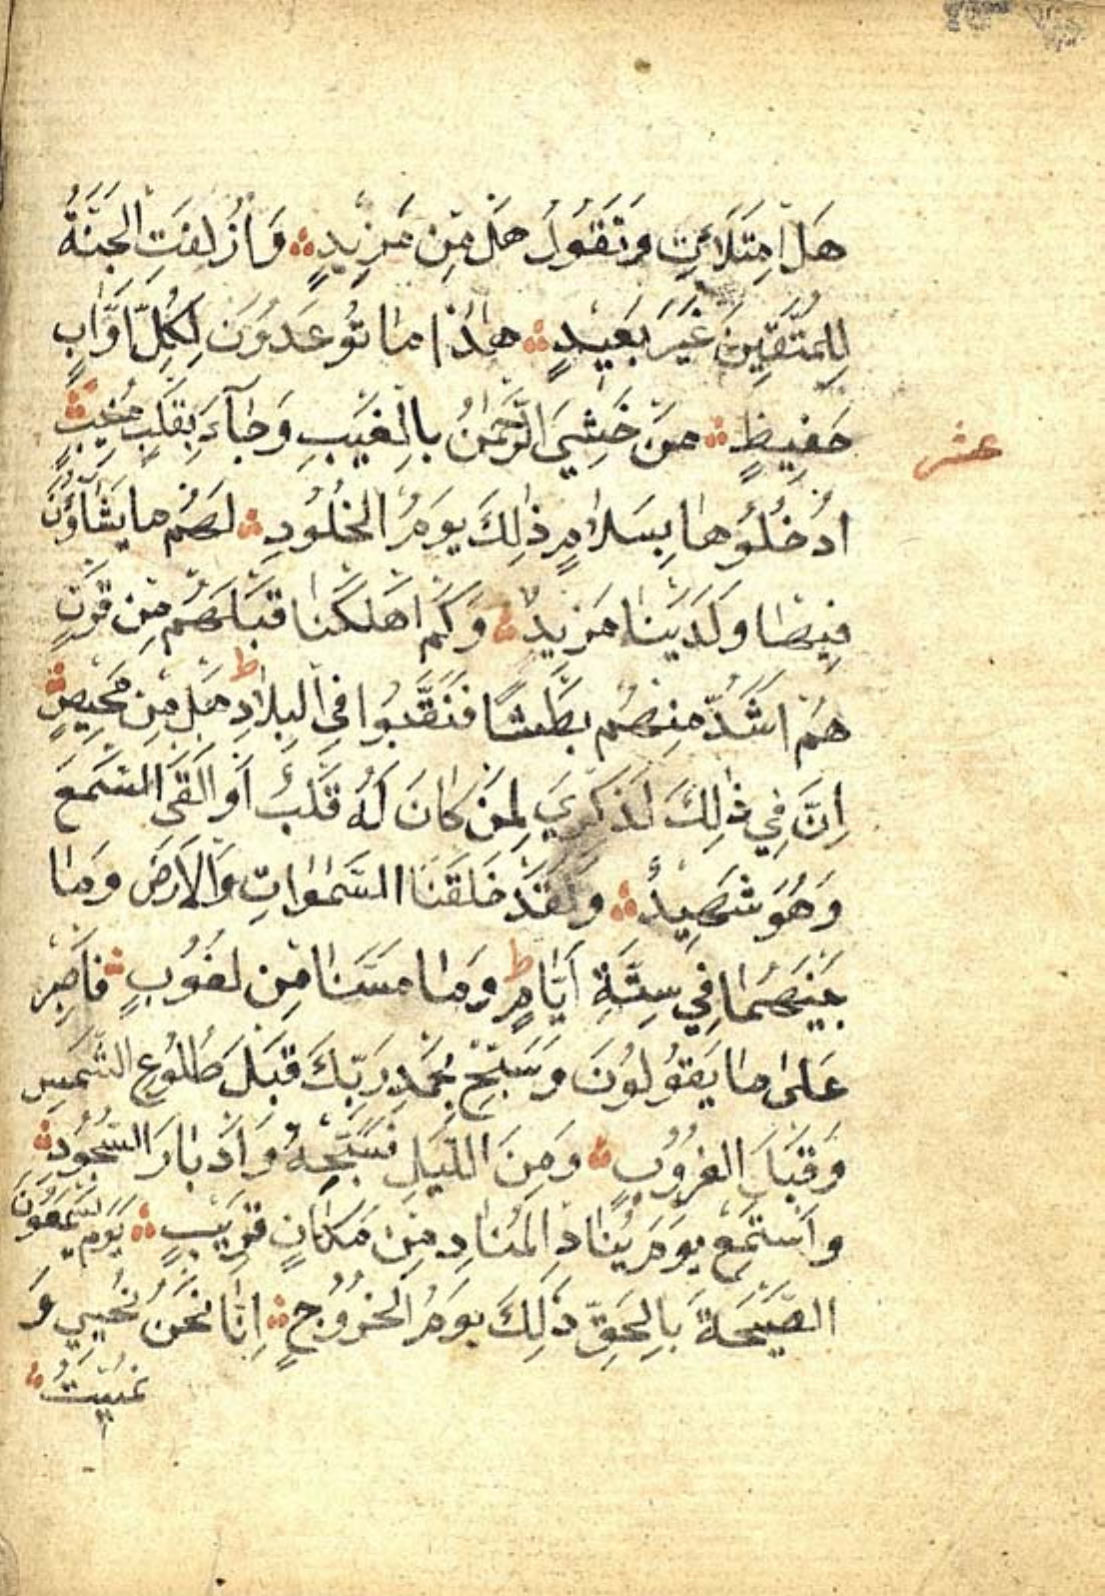 هَلِ امْتَلَأْتِ وَتَقُولُ هَلْ مِنْ مَزِيدٍ ۞ وَأُزْلِفَتِ الْجَنَّةُ
لِلْمُتَّقِينَ غَيْرَ بَعِيدٍ ۞ هٰذَا مَا تُوعَدُونَ لِكُلِّ أَوَّابٍ
حَفِيظٍ ۞ مَنْ خَشِيَ الرَّحْمٰنَ بِالْغَيْبِ وَجَآءَ بِقَلْبٍ مُنِيبٍ ۞
عشر
ادْخُلُوهَا بِسَلَامٍ ذٰلِكَ يَوْمُ الْخُلُودِ ۞ لَهُمْ مَا يَشَآؤُنَ
فِيهَا وَلَدَيْنَا مَزِيدٌ ۞ وَكَمْ أَهْلَكْنَا قَبْلَهُمْ مِنْ قَرْنٍ
هُمْ أَشَدُّ مِنْهُمْ بَطْشًا فَنَقَّبُوا فِي الْبِلَادِ ط هَلْ مِنْ مَحِيصٍ ۞
إِنَّ فِي ذٰلِكَ لَذِكْرَىٰ لِمَنْ كَانَ لَهُ قَلْبٌ أَوْ أَلْقَى السَّمْعَ
وَهُوَ شَهِيدٌ ۞ وَلَقَدْ خَلَقْنَا السَّمٰوَاتِ وَالْأَرْضَ وَمَا
بَيْنَهُمَا فِي سِتَّةِ أَيَّامٍ ط وَمَا مَسَّنَا مِنْ لُغُوبٍ ۞ فَاصْبِرْ
عَلَىٰ مَا يَقُولُونَ وَسَبِّحْ بِحَمْدِ رَبِّكَ قَبْلَ طُلُوعِ الشَّمْسِ
وَقَبْلَ الْغُرُوبِ ۞ وَمِنَ اللَّيْلِ فَسَبِّحْهُ وَأَدْبَارَ السُّجُودِ ۞
وَاسْتَمِعْ يَوْمَ يُنَادِ الْمُنَادِ مِنْ مَكَانٍ قَرِيبٍ ۞ يَوْمَ يَسْمَعُونَ
الصَّيْحَةَ بِالْحَقِّ ذٰلِكَ يَوْمُ الْخُرُوجِ ۞ إِنَّا نَحْنُ نُحْيِي وَ
نُمِيتُ ۞